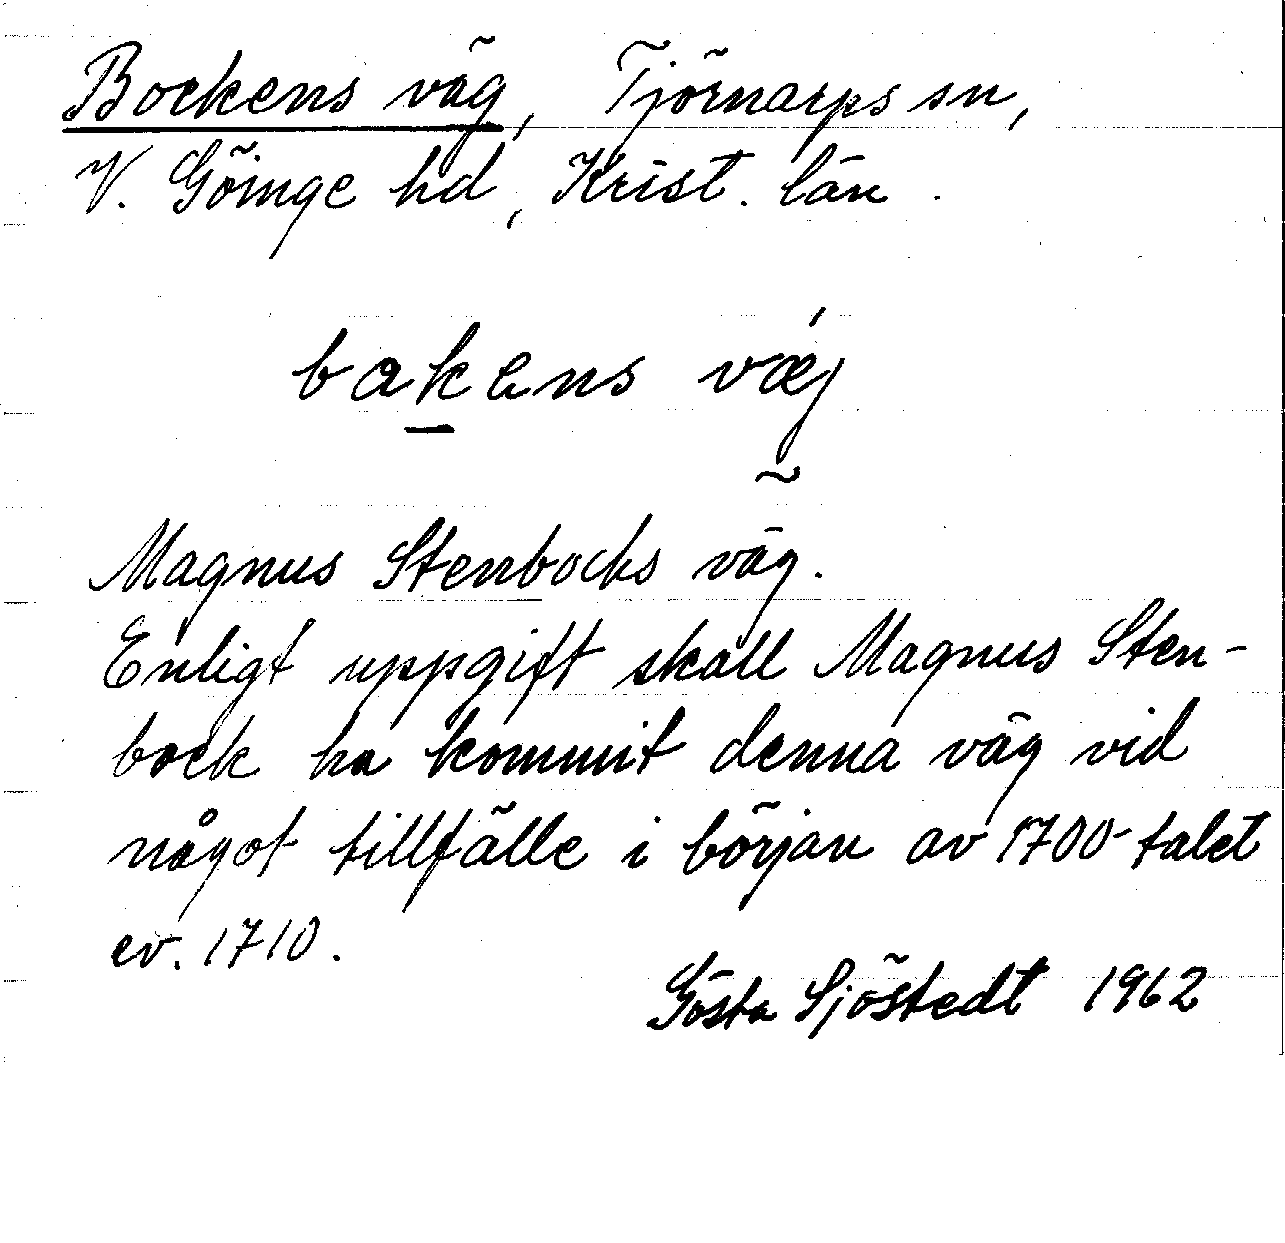 Bockens väg, Tjörnarps sn,
V. Göinge hd, Krist. län.
bakens vǽj
Magnus Stenbocks väg.
Enligt uppgift skall Magnus Sten-
bock ha kommit denna väg vid
något tillfälle i början av 1700-talet
ev. 1710.
Gösta Sjöstedt 1962